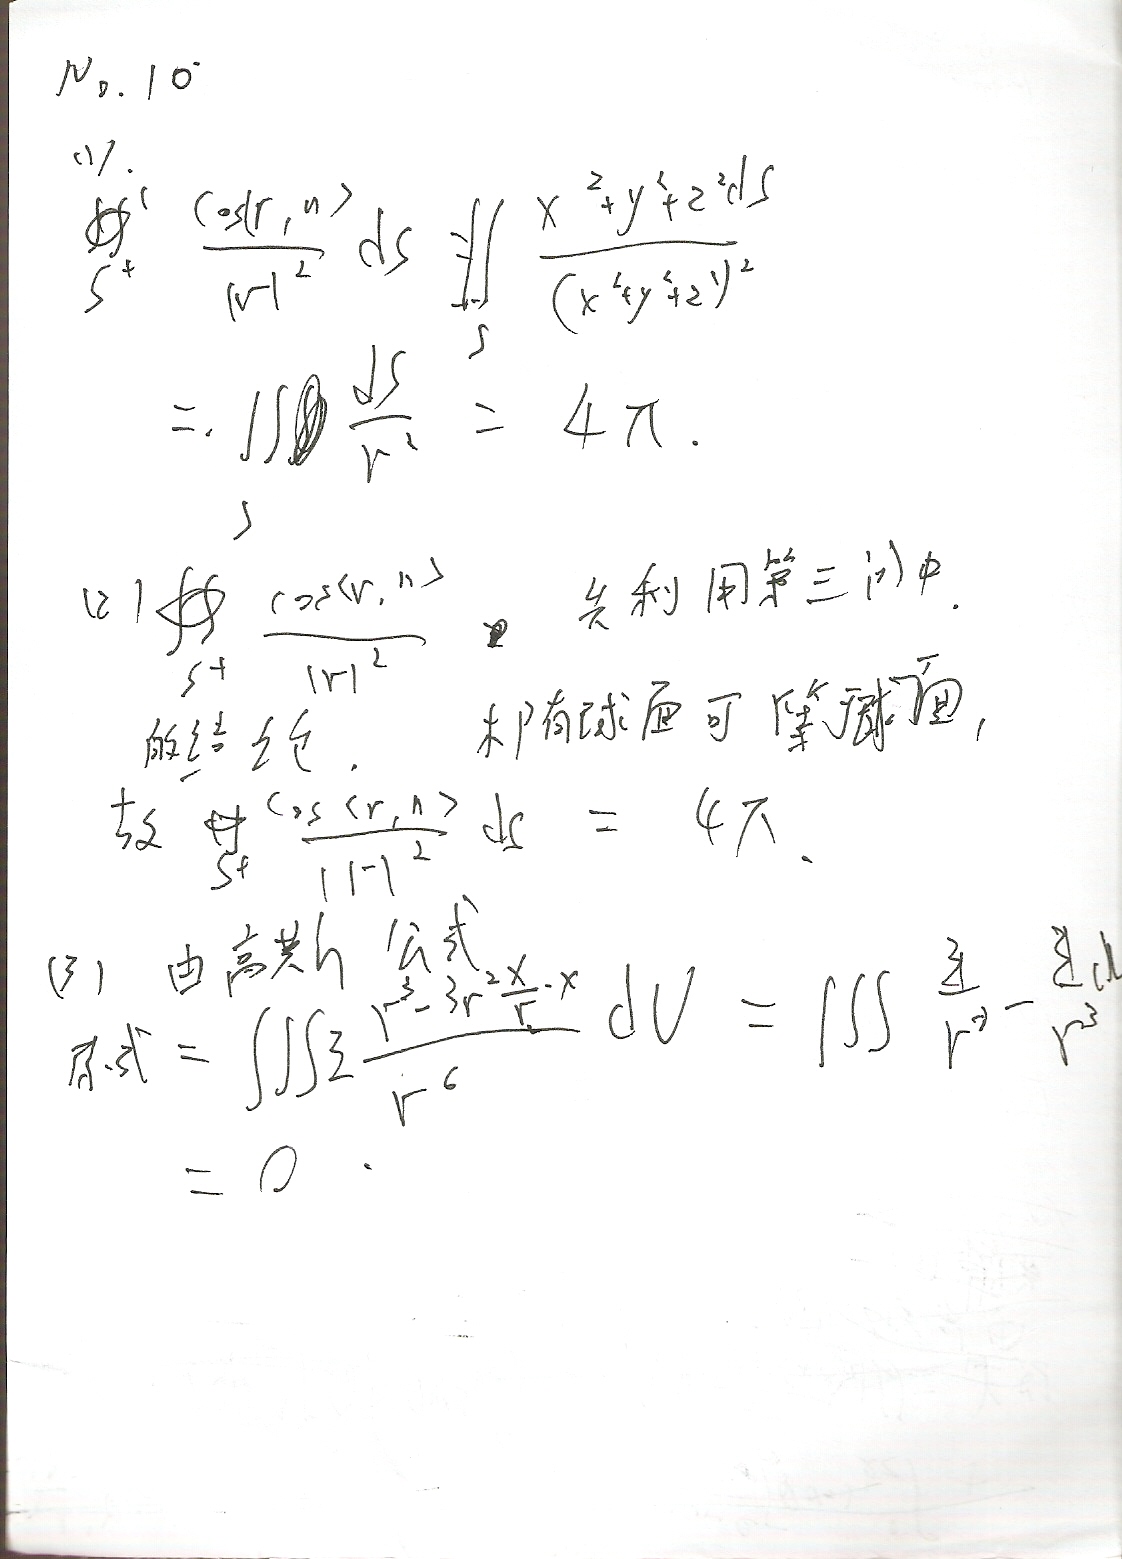 No. 10
(1).
∯_{S+} cos(r,n)/|r|² ds = ∬_S (x²+y²+z²ds)/(x²+y²+z²)²
= ∬_S ds/r² = 4π.
(2) ∯_{S+} cos<r,n>/|r|² 先利用第三问中.
的结论. 所有球面可 球面,
故 ∯_{S+} cos<r,n>/|r|² ds = 4π.
(3) 由高斯公式
原式 = ∭Σ (r³-3r² x/r · x)/r⁶ dV = ∭ 3/r³ - 3/r³ d
= 0.